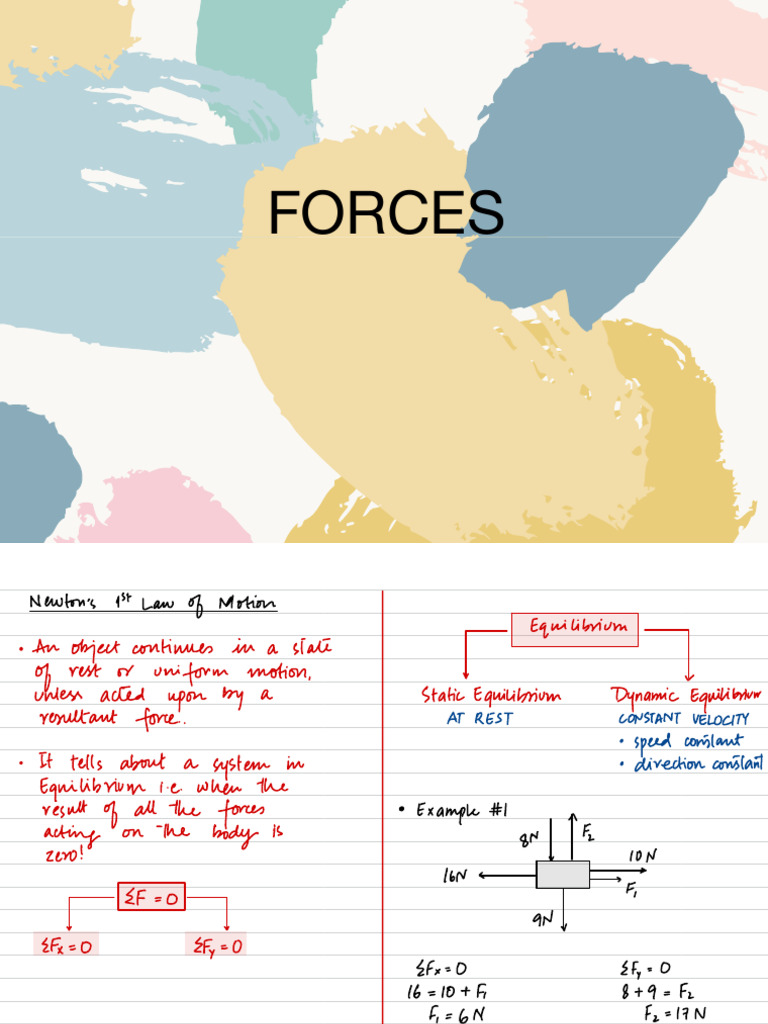 FORCES
Newton's 1st Law of Motion
• An object continues in a state
of rest or uniform motion,
unless acted upon by a
resultant force.
• It tells about a system in
Equilibrium i.e. when the
result of all the forces
acting on the body is
zero!
ΣF = 0
ΣFx = 0
ΣFy = 0
Equilibrium
Static Equilibrium
AT REST
Dynamic Equilibrium
CONSTANT VELOCITY
• speed constant
• direction constant
• Example #1
8N
F2
16N
10N
F1
9N
ΣFx = 0
16 = 10 + F1
F1 = 6N
ΣFy = 0
8 + 9 = F2
F2 = 17N